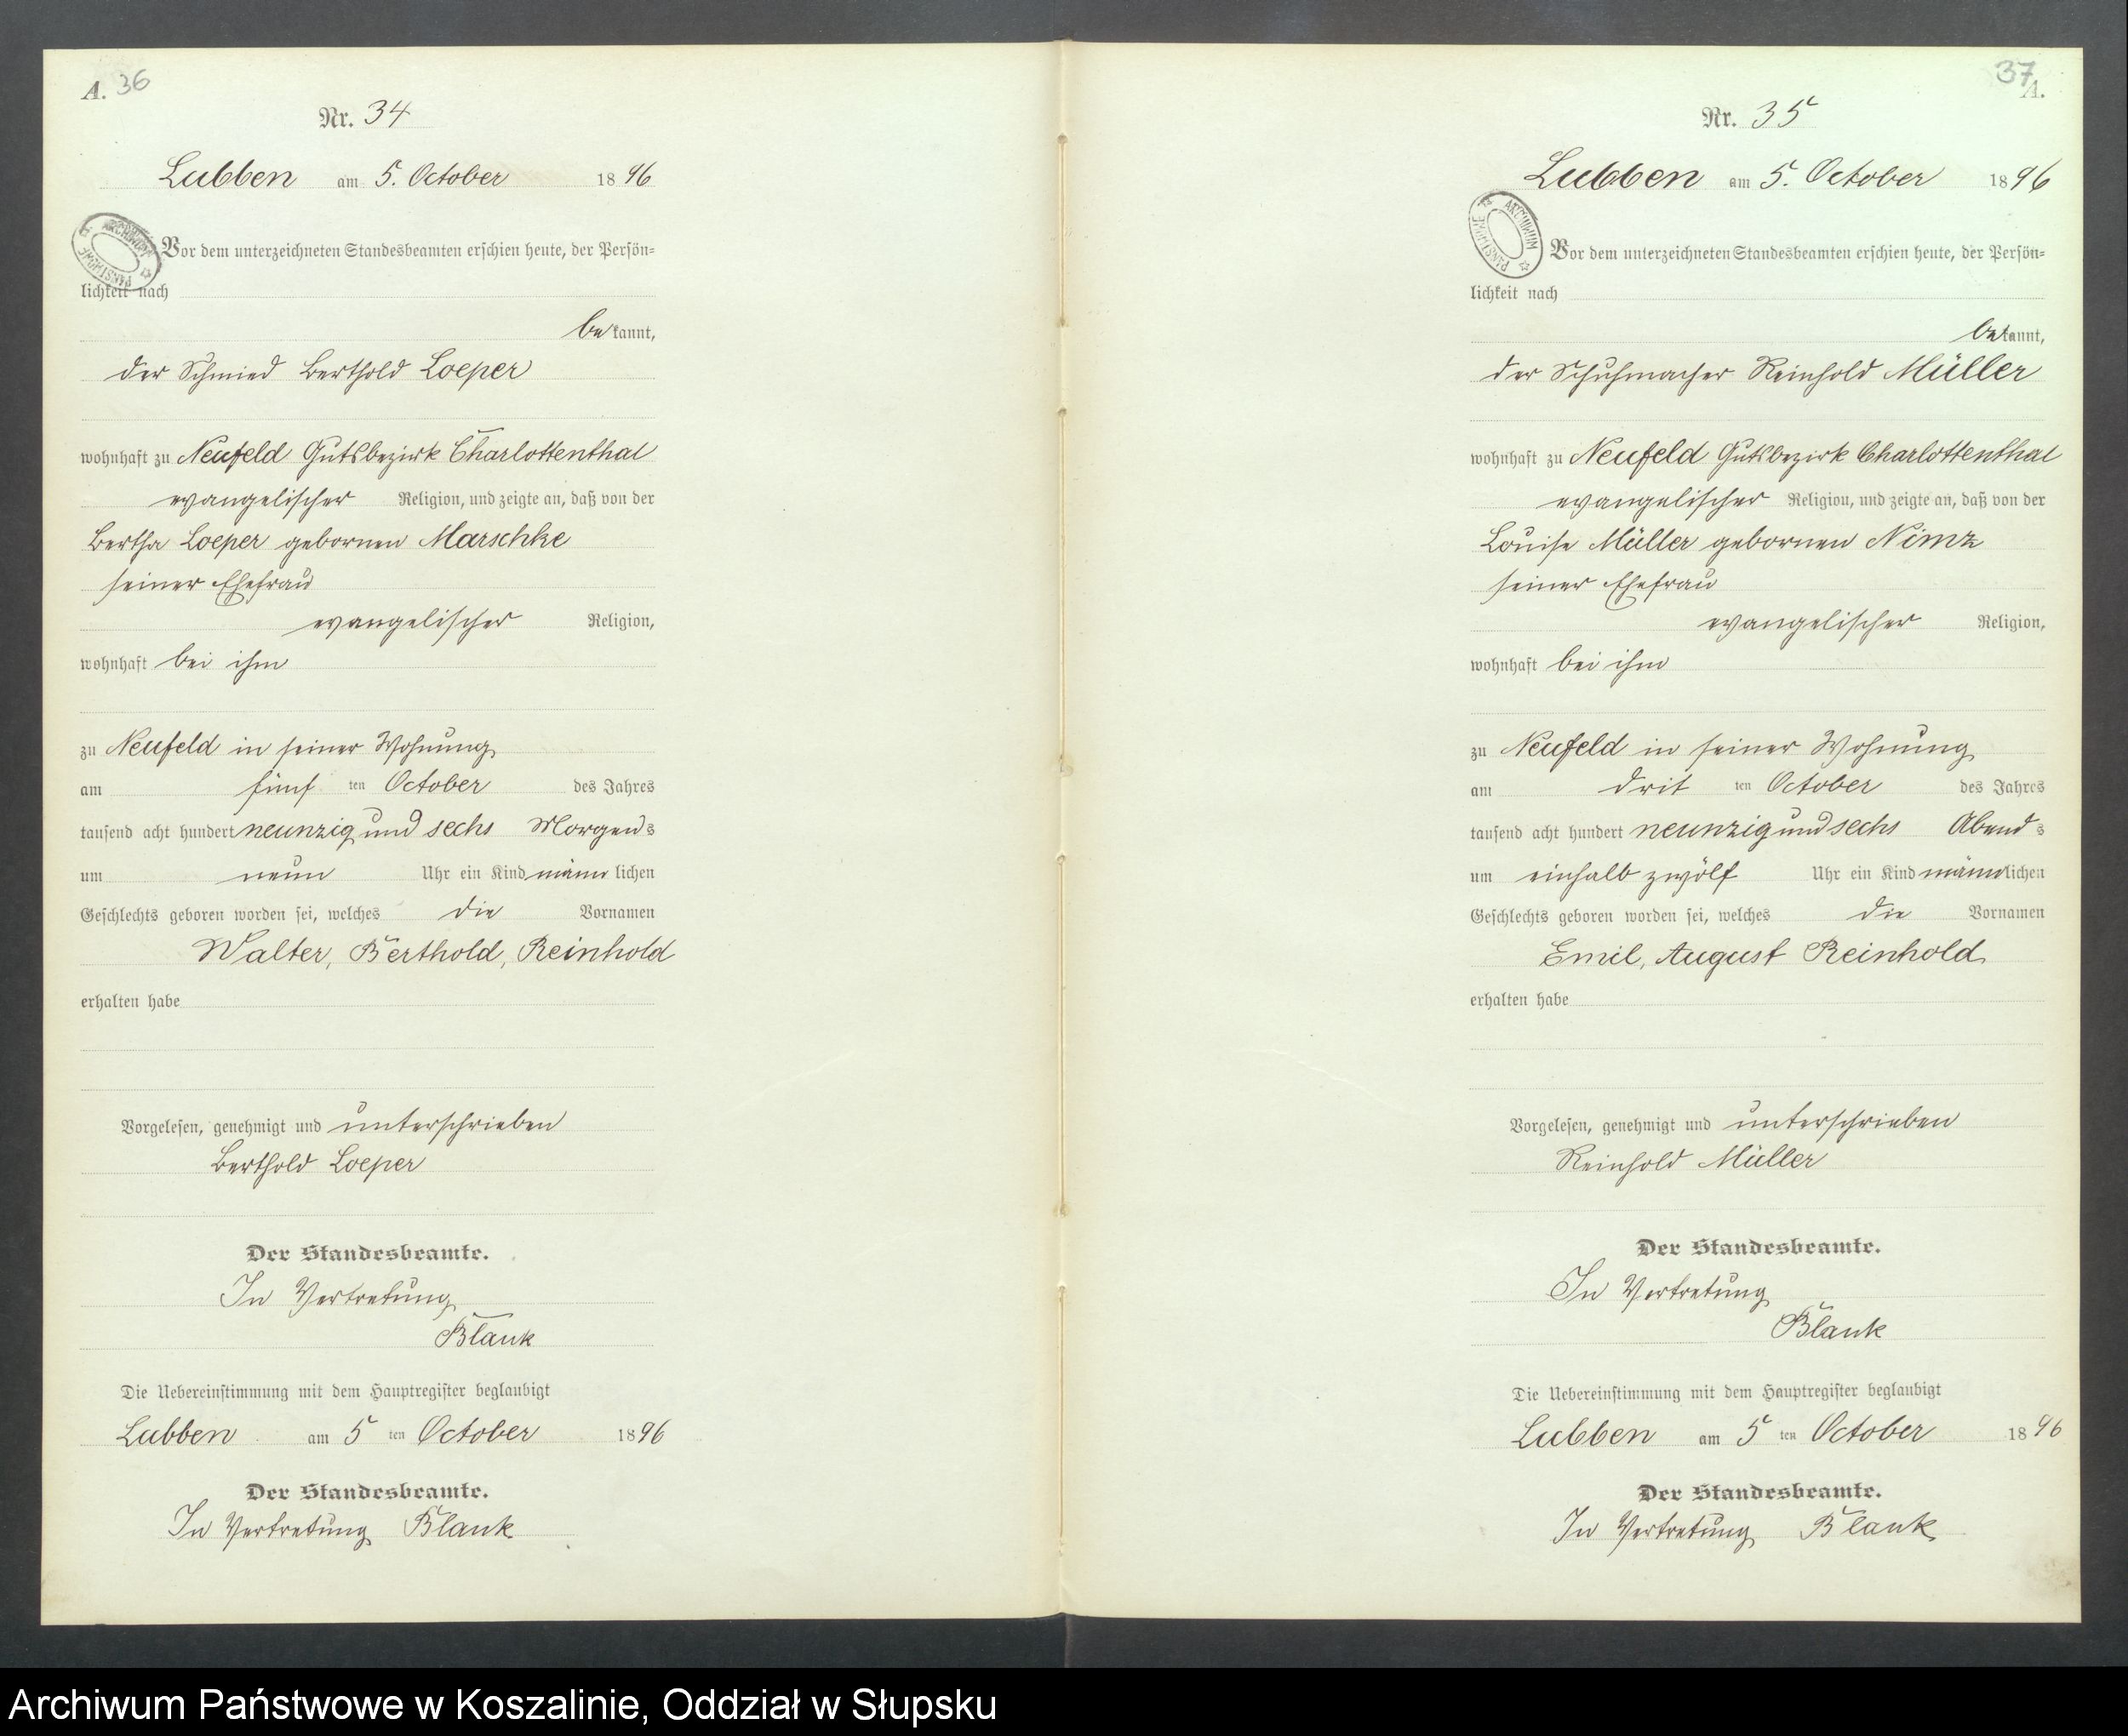 A. 36
Nr. 34
Lubben am 5. October 1896
ARCHIWUM PAŃSTWOWE
Vor dem unterzeichneten Standesbeamten erschien heute, der Persön=
lichkeit nach
bekannt,
der Schmied Berthold Loeper
wohnhaft zu Neufeld Gutsbezirk Charlottenthal
evangelischer Religion, und zeigte an, daß von der
Bertha Loeper gebornen Marschke
seiner Ehefrau
evangelischer Religion,
wohnhaft bei ihm
zu Neufeld in seiner Wohnung
am fünf ten October des Jahres
tausend acht hundert neunzig und sechs Morgens
um neun Uhr ein Kind männlichen
Geschlechts geboren worden sei, welches die Vornamen
Walter, Berthold, Reinhold
erhalten habe
Vorgelesen, genehmigt und unterschrieben
Berthold Loeper
Der Standesbeamte.
In Vertretung
Blank
Die Uebereinstimmung mit dem Hauptregister beglaubigt
Lubben am 5 ten October 1896
Der Standesbeamte.
In Vertretung Blank
37
A.
Nr. 35
Lubben am 5. October 1896
ARCHIWUM PAŃSTWOWE
Vor dem unterzeichneten Standesbeamten erschien heute, der Persön=
lichkeit nach
bekannt,
der Schuhmacher Reinhold Müller
wohnhaft zu Neufeld Gutsbezirk Charlottenthal
evangelischer Religion, und zeigte an, daß von der
Louise Müller gebornen Nimz
seiner Ehefrau
evangelischer Religion,
wohnhaft bei ihm
zu Neufeld in seiner Wohnung
am drit ten October des Jahres
tausend acht hundert neunzig und sechs Abends
um einhalb zwölf Uhr ein Kind männlichen
Geschlechts geboren worden sei, welches die Vornamen
Emil, August Reinhold
erhalten habe
Vorgelesen, genehmigt und unterschrieben
Reinhold Müller
Der Standesbeamte.
In Vertretung
Blank
Die Uebereinstimmung mit dem Hauptregister beglaubigt
Lubben am 5 ten October 1896
Der Standesbeamte.
In Vertretung Blank
Archiwum Państwowe w Koszalinie, Oddział w Słupsku